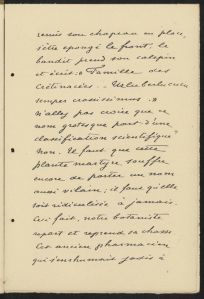 remis son chapeau en place,
s'être épongé le front, le
bandit prend son calepin
et écrit: " Famille des
Crétinacées.
semper crassissimus. "
N'allez pas croire que ce
nom grotesque soit d'une
classification scientifique!
Non. Il faut que cette
plante martyre souffre
encore de porter un nom
aussi vilain; il faut qu'elle
soit ridiculisée à jamais.
Ceci fait, notre botaniste
repart et reprend sa chasse
Cet ancien pharmacien
qui s'enrhumait jadis à